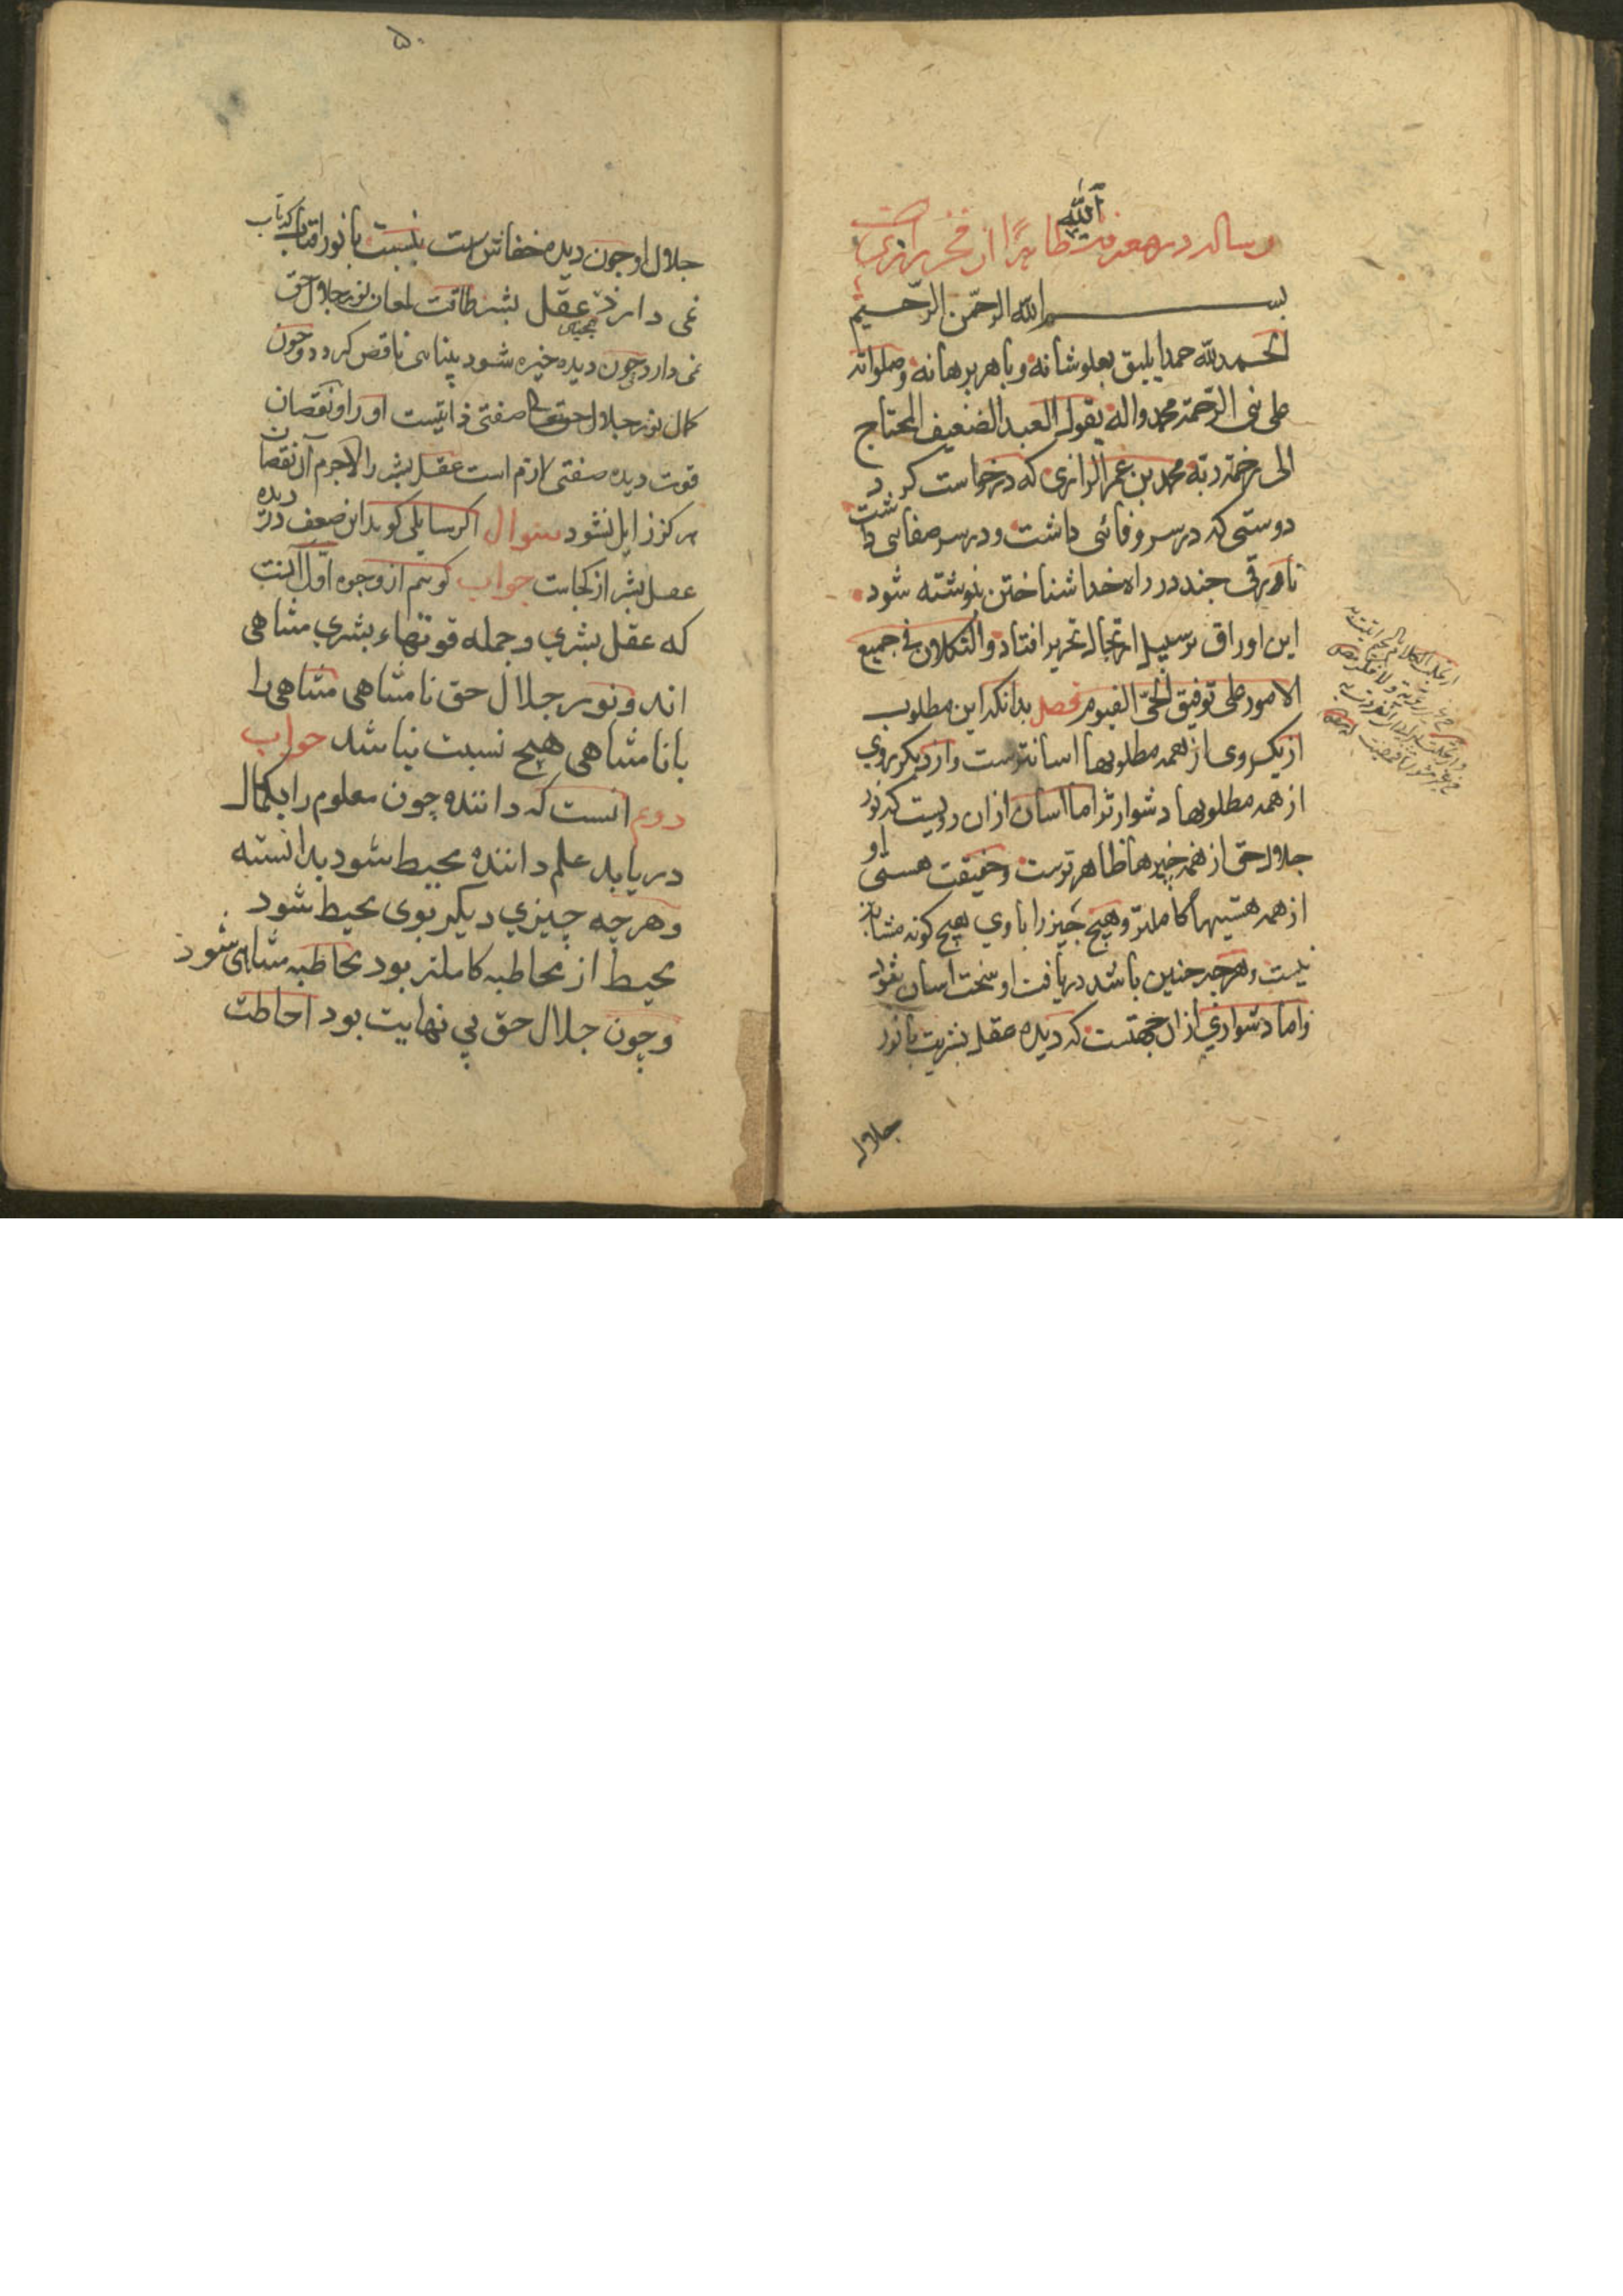 الله
رساله در معرفت ظاهرا از فخر رازیست
بسم الله الرحمن الرحیم
الحمدلله حمدا یلیق بعلو شانه و باهر برهانه وصلواته
علی نبی الرحمة محمد واله یقول العبد الضعیف المحتاج
الی رحمة ربه محمد بن عمر الرازی که درخواست کرد
دوستی که در سر وفائی داشت و در سر صفایی داشت
تا ورقی جند در راه خدا شناختن نوشته شود
این اوراق بر سبیل ارتجال تحریر افتاد والتکلان فی جمیع
الامور علی توفیق الحی القیوم فصل بدانکه این مطلوب
از یک روی از همه مطلوبها اسانترست واز دیکر روی
از همه مطلوبها دشوارتر اما اسان ازان رویست که نور
جلال حق از همه چیزها ظاهرترست و حقیقت هستی او
از همه هستیها کاملتر و هیچ چیز را با وی هیچ کونه مشابهت
نیست و هرچه جنین باشد دریافت او سخت اسان بود
واما دشواری ازان جهتست که دیده عقل بشریت با نور
جلال
۵۰
جلال او جون دیده خفاش است بنسبت با نور افتاب که تاب
نمی دارد عقل بشر طاقت لمعان نور جلال حق
نمی دارد و جون دیده خیره شود بینایی ناقص کردد و جون
کمال نور جلال حق صفتی ذاتیست او را و نقصان
قوت دیده صفتی لازم است عقل بشر را لاجرم آن نقصان
هرکز زایل نشود سوال اکر سایلی کوید این ضعف در دیده
عقل بشر از کجاست جواب کوییم از وجوه اول آنست
که عقل بشری و جمله قوتهاء بشری متناهی
اند و نور جلال حق نامتناهی متناهی را
با نامتناهی هیچ نسبت نباشد جواب
دوم انست که داننده چون معلوم را بکمال
دریابد علم داننده محیط شود بدانسته
و هرچه چیزی دیکر بوی محیط شود
محیط از محاط به کاملتر بود محاط به متناهی شود
و چون جلال حق بی نهایت بود احاطت